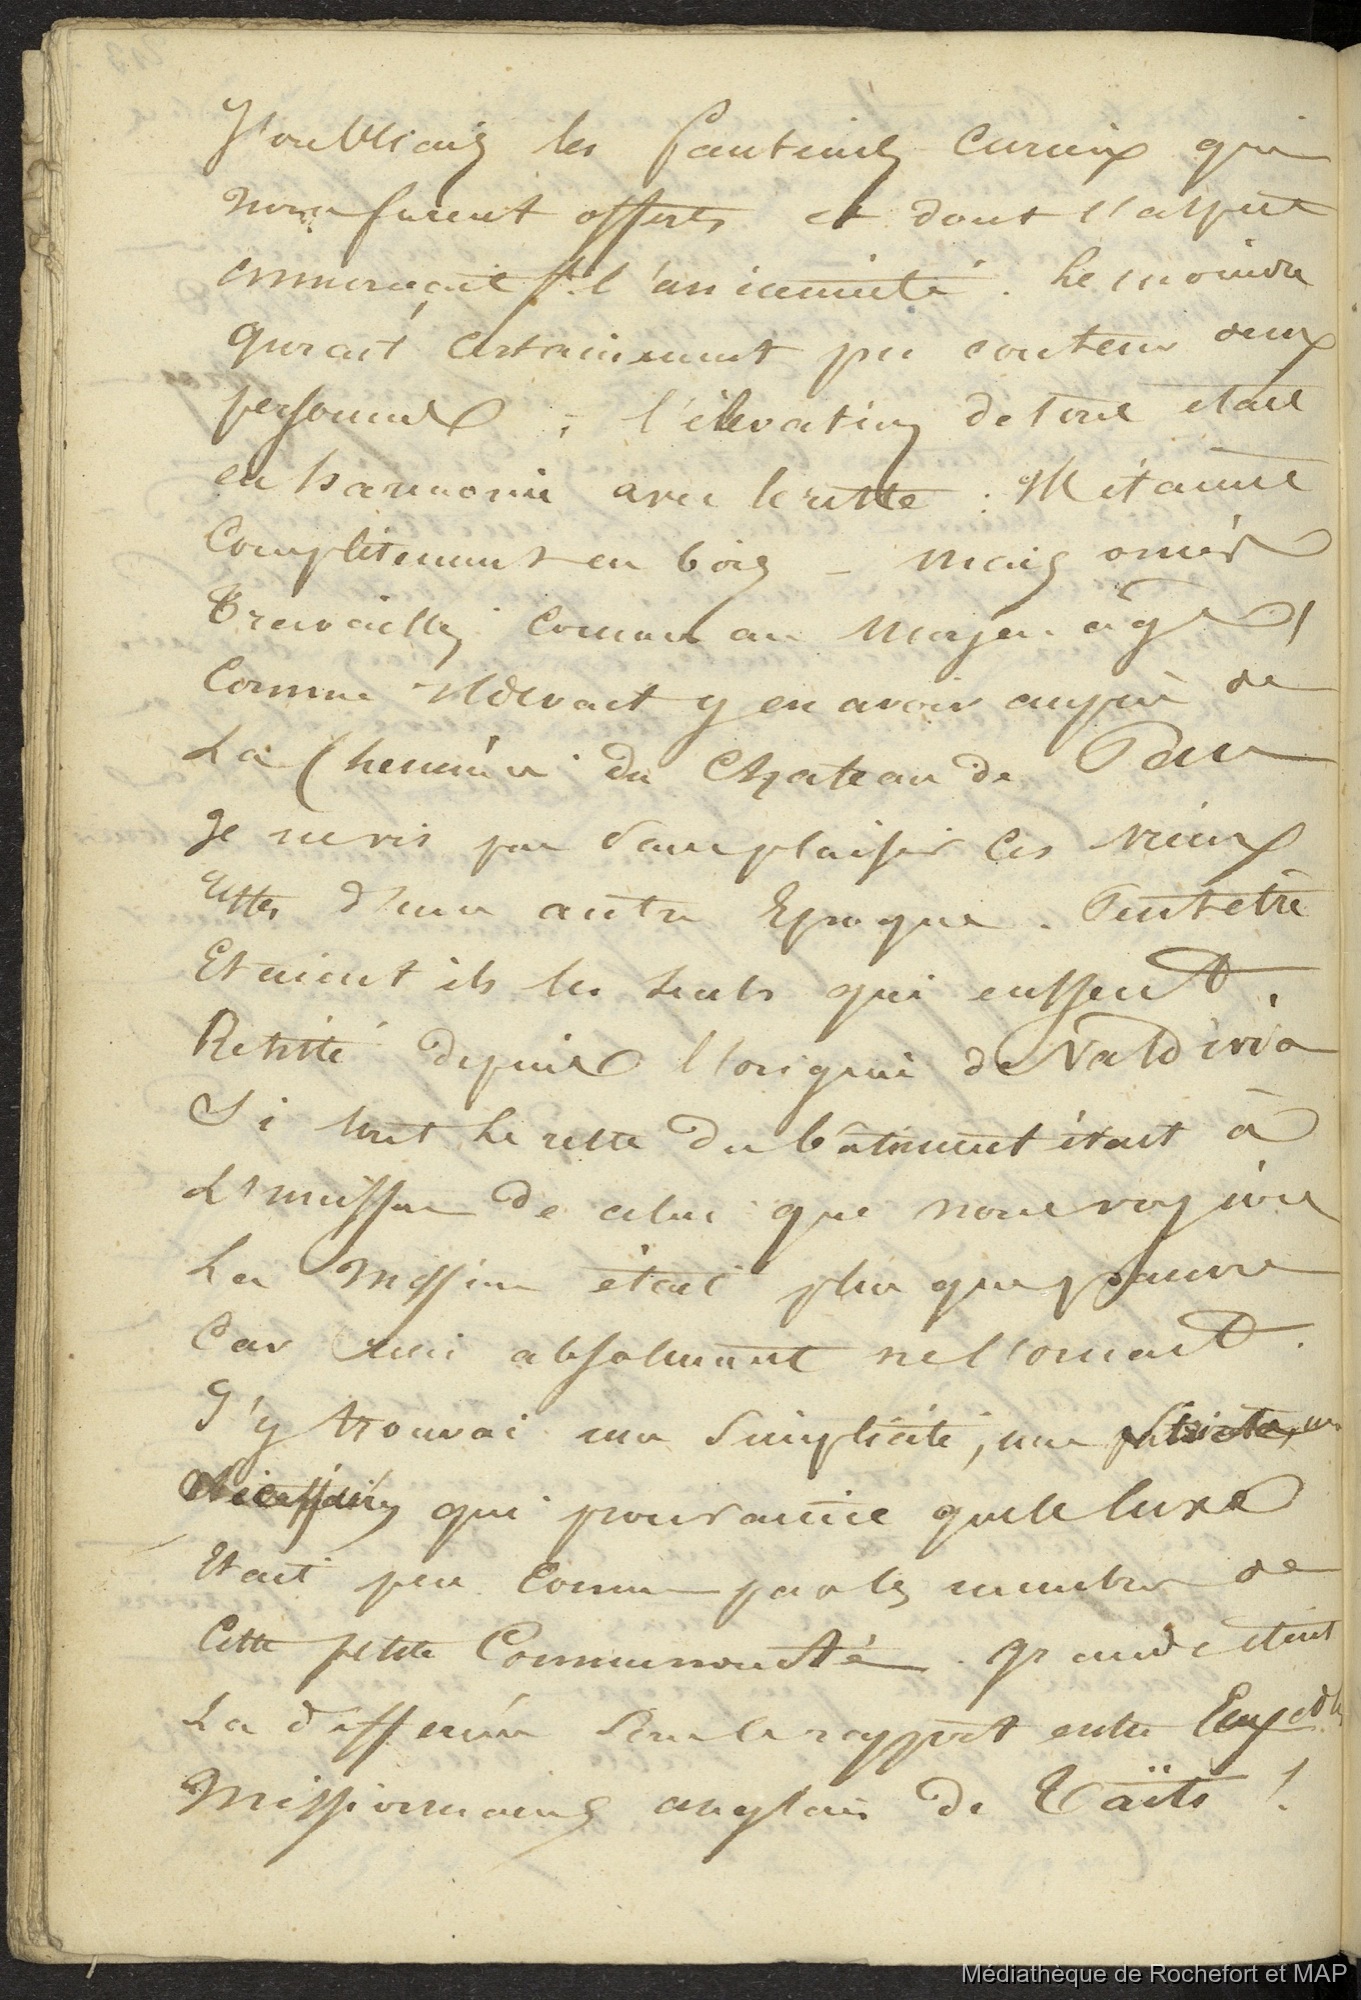 J'oubliais les fauteuils curieux qui
nous furent offerts et dont l'aspect
annonçait l'ancienneté. Le moindre
aurait certainement pu contenir deux
personnes ; l'élévation de tous était
en harmonie avec le reste : Ils étaient
Complètement en bois - mais ornés
Travaillés comme au moyen age
Comme il devait y en avoir auprès de
La Cheminée du Chateau de Pau
Je ne vis pas sans plaisir ces vieux
restes d'une autre Epoque. Peut etre
Etaient ils les seuls qui eussent
Resisté depuis l'origine de Valdivia
Si tout le reste du bâtiment était à
L' de celui que nous voyions
La Mission était plus que pauvre
Car rien absolument ne l'ornait.
J'y trouvai une Simplicité, une stricte, un
qui prouvaient que le luxe
Etait peu connu par les membres de
Cette petite Communauté. grande était
La différence sous le rapport entre Eux et les
Missionnaires anglais de Taïti !
Médiathèque de Rochefort et MAP